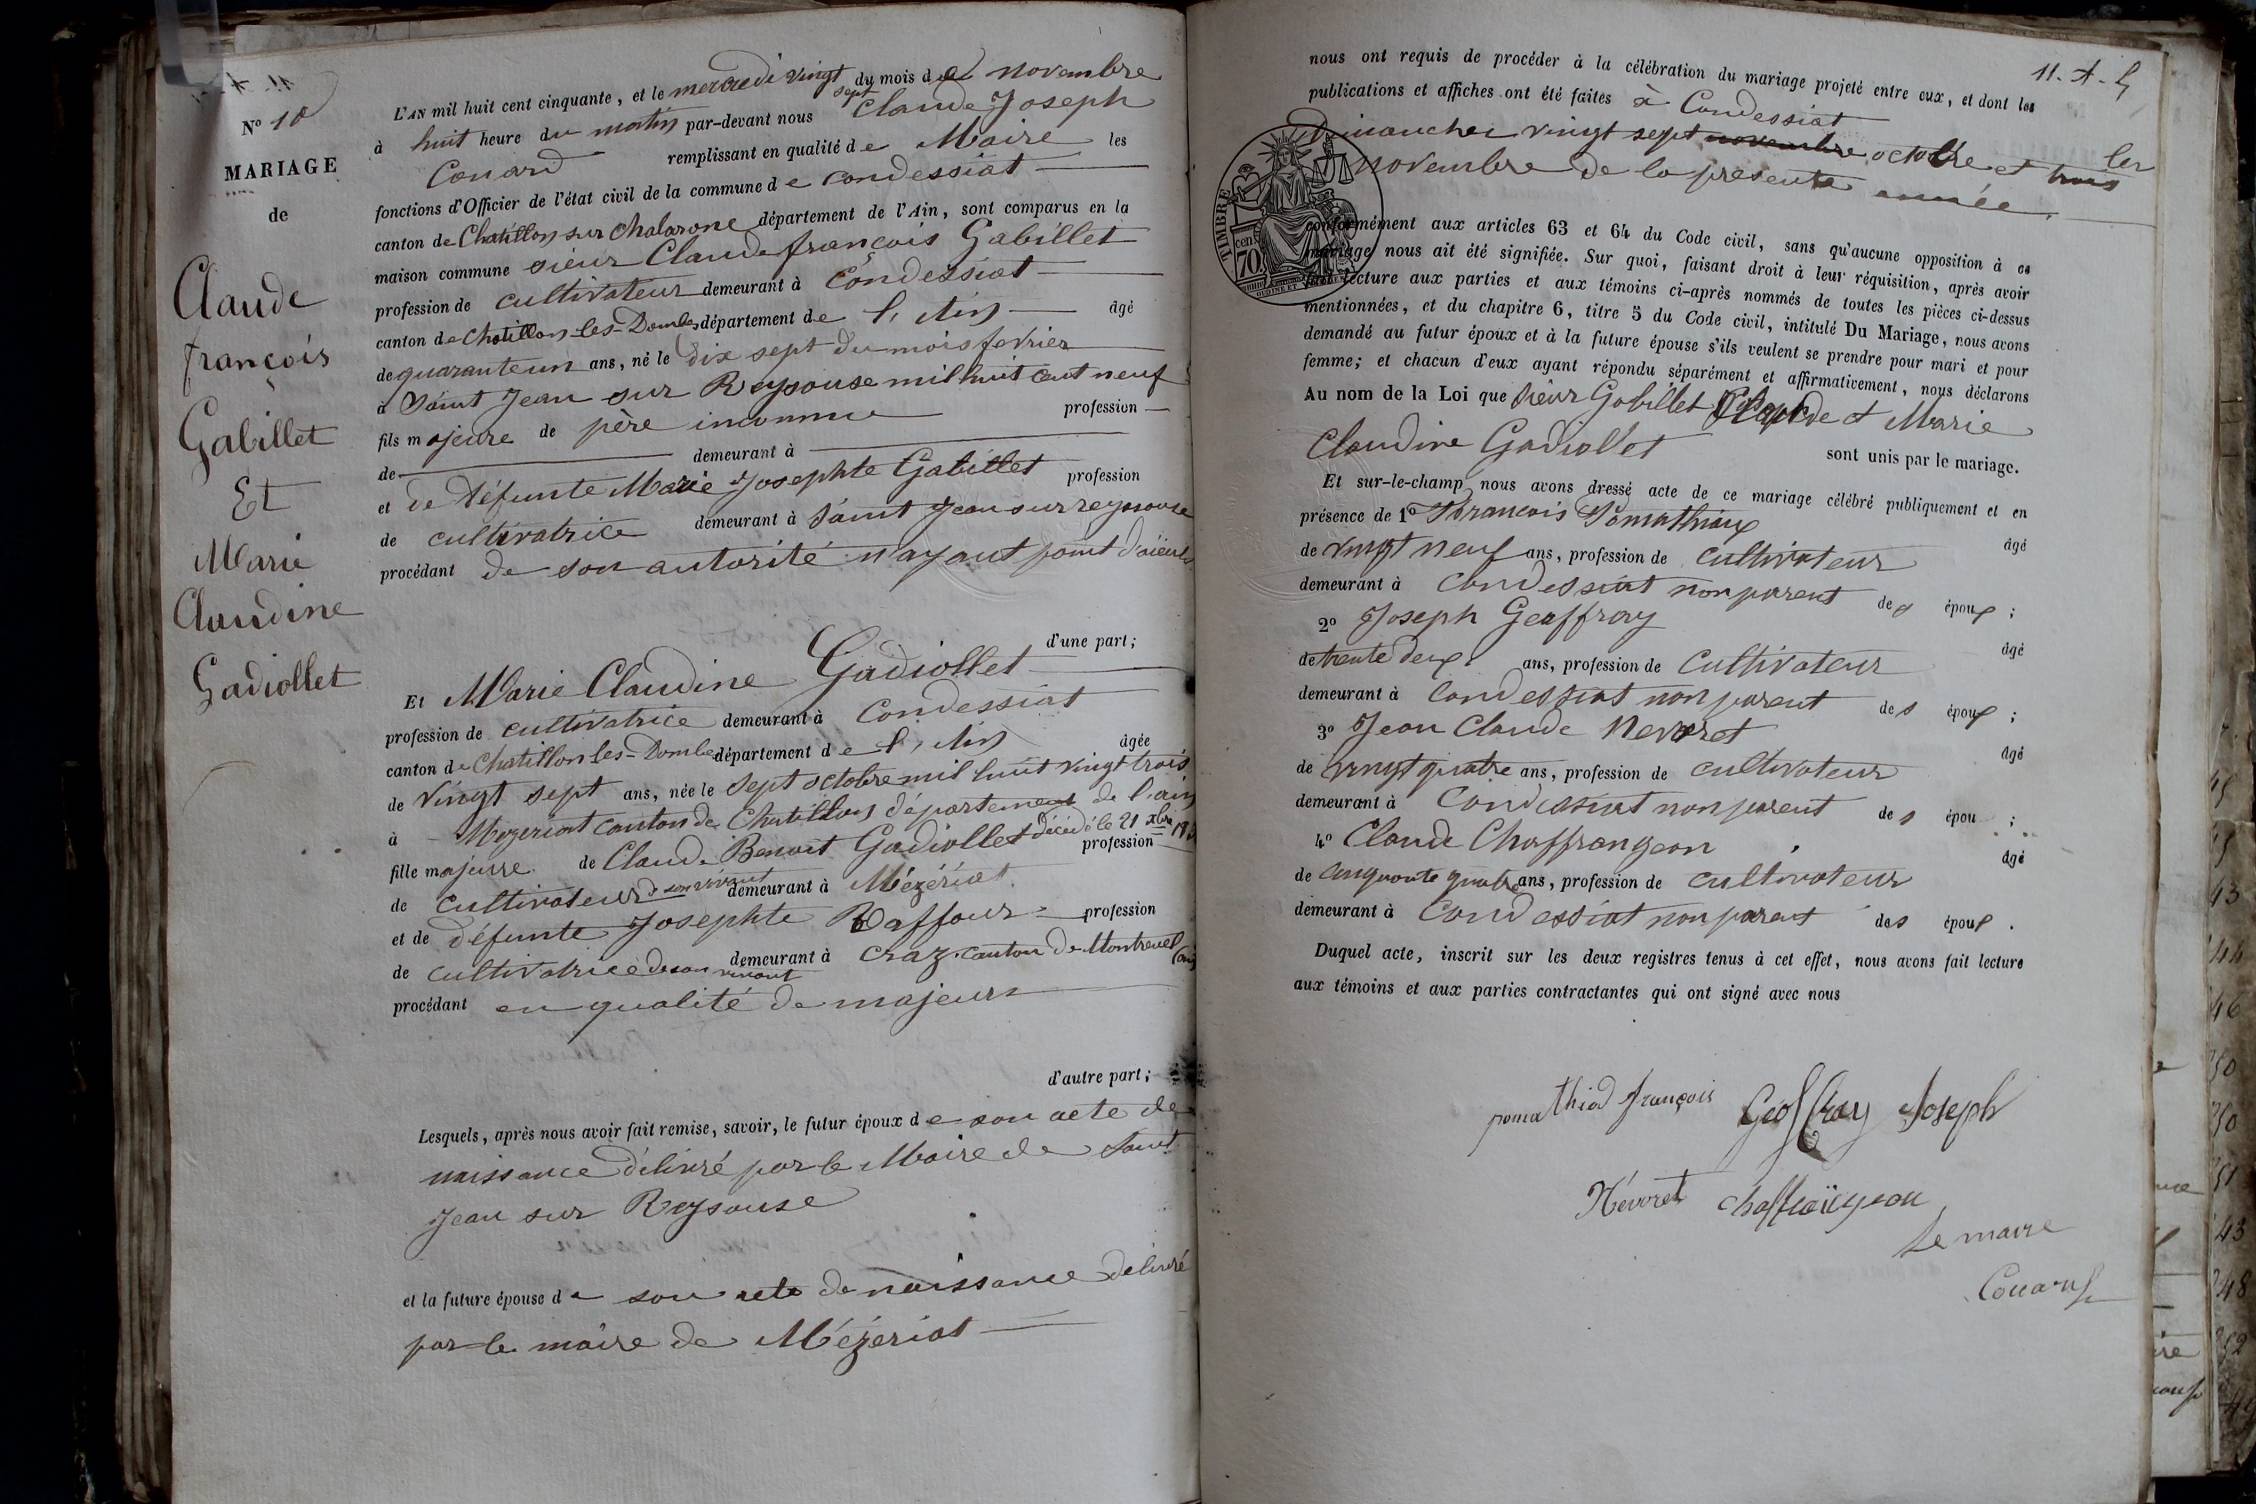 N° 10
MARIAGE
de
Claude
françois
Gabillet
Et
Marie
Claudine
Gadiollet
L'AN mil huit cent cinquante, et le mercredi vingt sept du mois de novembre
à huit heure du matin par-devant nous Claude Joseph
Conard remplissant en qualité de Maire les
fonctions d'Officier de l'état civil de la commune de condessiat
canton de Chatillon sur Chalarone département de l'Ain, sont comparus en la
maison commune sieur Claude françois Gabillet
profession de cultivateur demeurant à Condessiat
canton de Chatillon-les-Dombes département de l'Ain âgé
de quaranteun ans, né le dix sept du mois fevrier
à Saint Jean sur Reysouse mil huit cent neuf
fils majeure de père inconnu profession
de demeurant à
et de défunte Marie Josephte Gabillet profession
de cultivatrice demeurant à Saint Jean sur reysouse
procédant de son autorité n'ayant point d'aïeuls
d'une part;
Et Marie Claudine Gadiollet
profession de cultivatrice demeurant à Condessiat
canton de Chatillon les-Dombe département de l'Ain âgée
de vingt sept ans, née le sept octobre mil huit vingt trois
à Mezeriat canton de Chatillon département de l'ain
fille majeure de Claude Benoit Gadiollet décédé le 21 xbre
profession
de cultivateur de son vivant demeurant à Mézériat
et de défunte Josephte Raffour profession
de cultivatrice de son vivant demeurant à Craz canton de Montrevel (ain
procédant en qualité de majeurs
d'autre part;
Lesquels, après nous avoir fait remise, savoir, le futur époux de son acte de
naissance délivré par le Maire de Saint
Jean sur Reysouse
et la future épouse de son acte de naissance délivré
par le maire de Mézeriat
11. A. 5
nous ont requis de procéder à la célébration du mariage projeté entre eux, et dont les
publications et affiches ont été faites à Condessiat
Dimanches vingt sept novembre octobre et trois 1er
novembre de la présente année.
TIMBRE
70
conformément aux articles 63 et 64 du Code civil, sans qu'aucune opposition à ce
mariage nous ait été signifiée. Sur quoi, faisant droit à leur réquisition, après avoir
fait lecture aux parties et aux témoins ci-après nommés de toutes les pièces ci-dessus
mentionnées, et du chapitre 6, titre 5 du Code civil, intitulé Du Mariage, nous avons
demandé au futur époux et à la future épouse s'ils veulent se prendre pour mari et pour
femme; et chacun d'eux ayant répondu séparément et affirmativement, nous déclarons
Au nom de la Loi que Sieur Gabillet Claude et Marie
Claudine Gadiollet sont unis par le mariage.
Et sur-le-champ nous avons dressé acte de ce mariage célébré publiquement et en
présence de 1° François Pomathiod âgé
de vingt neuf ans, profession de cultivateur
demeurant à Condessiat non parent des époux;
2° Joseph Geoffray âgé
de trente deux ans, profession de cultivateur
demeurant à Condessiat non parent des époux;
3° Jean Claude Nevoret âgé
de vingt quatre ans, profession de cultivateur
demeurant à Condessiat non parent des épou;
4° Claude Chaffrangeon âgé
de cinquante quatre ans, profession de cultivateur
demeurant à Condessiat non parent des époux.
Duquel acte, inscrit sur les deux registres tenus à cet effet, nous avons fait lecture
aux témoins et aux parties contractantes qui ont signé avec nous
pomathiod françois Geoffray Joseph
Névoret chaffrangeon
Le maire
Conard